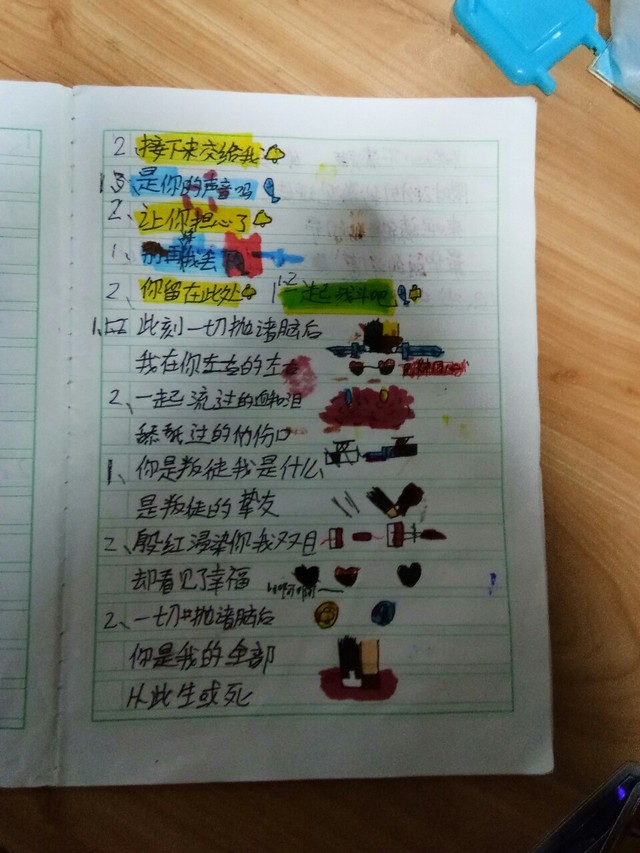 2 接下来交给我
1、是你的声音吗
2、让你担心了
1、别再我丢
2、你留在此处 1、2 一起战斗吧
1、 此刻一切抛诸脑后
我在你左右的左右
2、一起流过的血和泪
舔舐过的伤口
1、你是叛徒我是什么
是叛徒的挚友
2、殷红浸染你我双目
却看见了幸福
2、一切抛诸脑后
你是我的全部
从此生或死